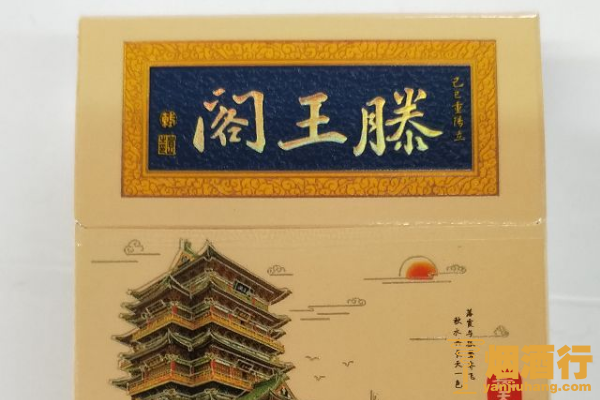 滕王阁
己巳重阳立
落霞与孤鹜齐飞
秋水共长天一色
烟酒行
yanjiuhang.com